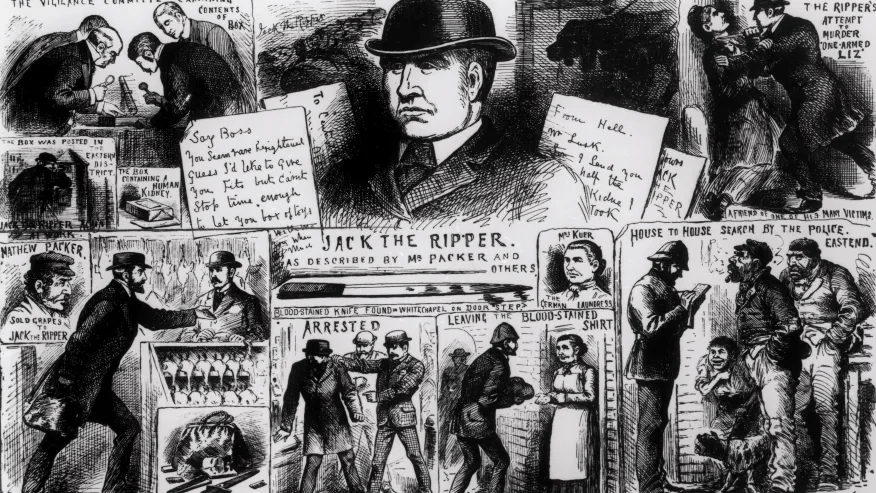 THE VIGILANCE COMMITTEE EXAMINING
CONTENTS
OF
BOX
THE BOX WAS POSTED IN
THE
EASTERN
DIS-
TRICT.
THE BOX
CONTAINING A
HUMAN
KIDNEY.
JACK THE RIPPER
Jack the Ripper
Say Boss
You seem rare frightened
guess I'd like to give
you fits but can't
stop time enough
to let you box of toys
To
From Hell.
Mr Lusk.
I send you
half the
Kidne I
took
Yours
JACK
THE
RIPPER
THE RIPPER'S
ATTEMPT
TO
MURDER
"ONE-ARMED
LIZ"
A FRIEND OF ONE OF HIS MANY VICTIMS.
MATHEW PACKER.
SOLD GRAPES
TO
JACK THE RIPPER
JACK THE RIPPER.
AS DESCRIBED BY Mr PACKER AND
OTHERS
BLOOD-STAINED KNIFE FOUND IN WHITECHAPEL ON DOOR STEP
Mrs KUER
THE
GERMAN LAUNDRESS
ARRESTED
LEAVING THE BLOOD-STAINED
SHIRT
HOUSE TO HOUSE SEARCH BY THE POLICE.
EAST END.